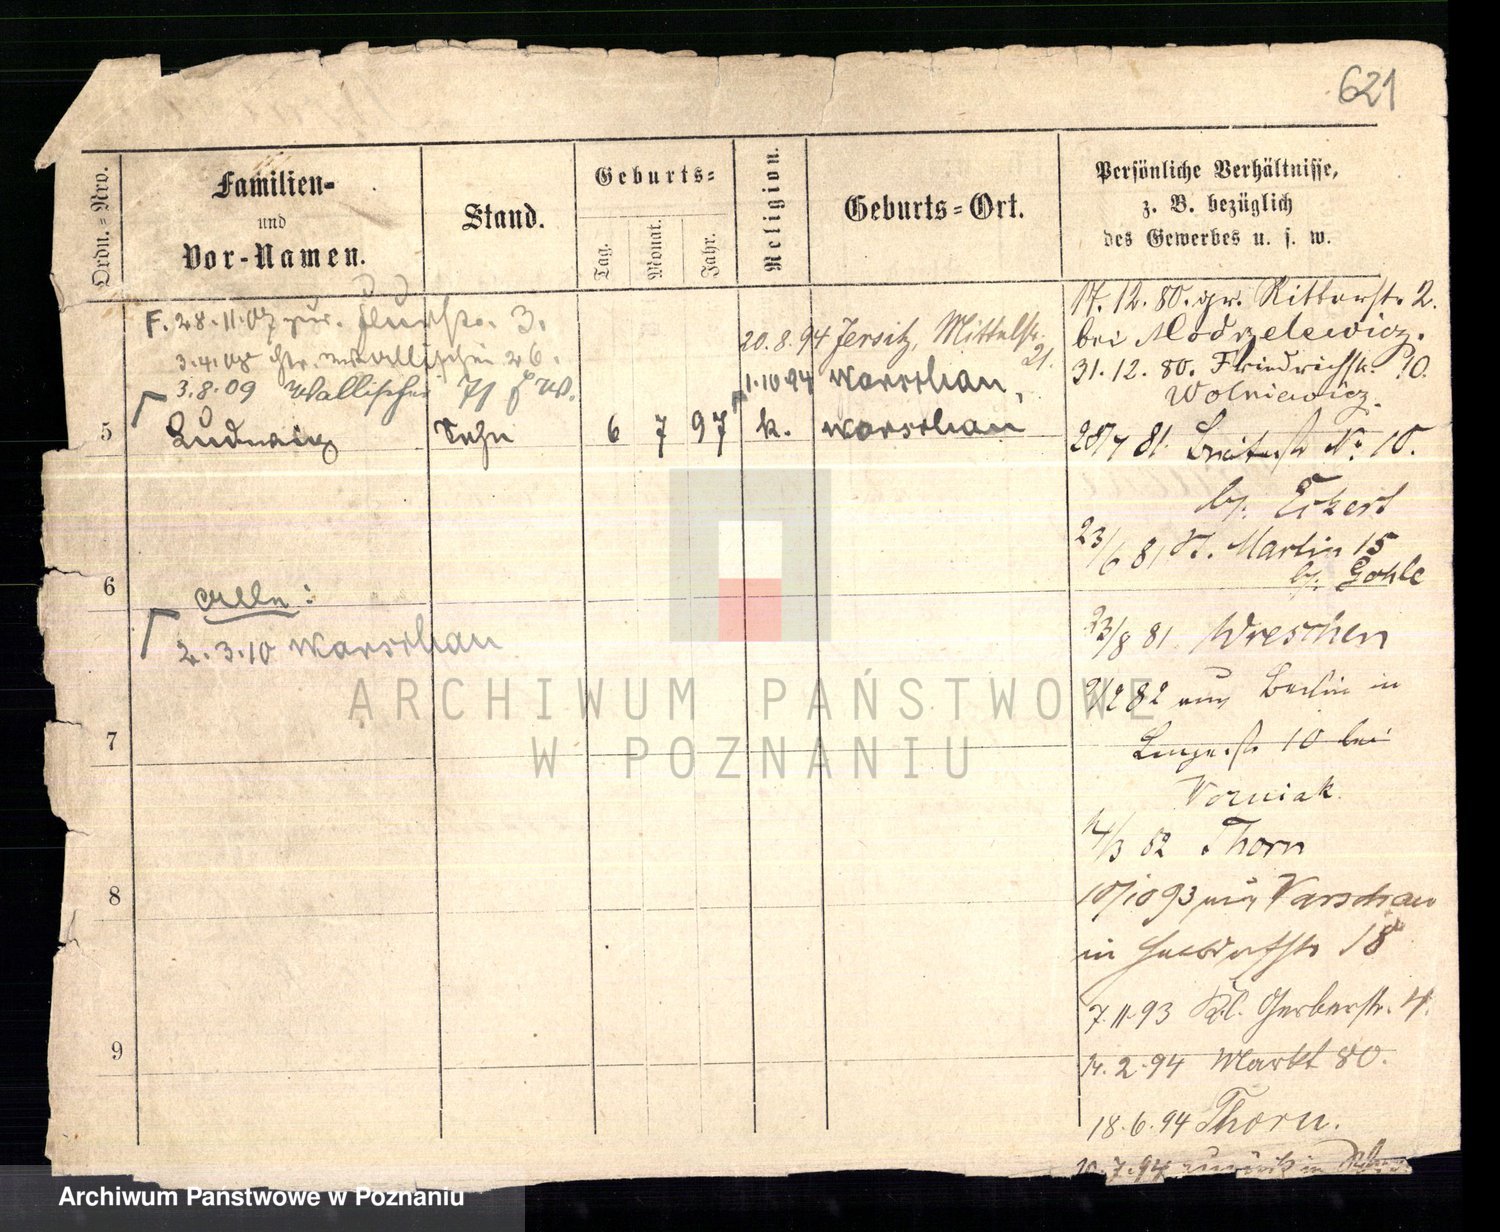 621
Ordn.-Nro.
Familien-
und
Vor-Namen.
Stand.
Geburts-
Tag.
Monat.
Jahr.
Religion.
Geburts-Ort.
Persönliche Verhältnisse,
z. B. bezüglich
des Gewerbes u. s. w.
F. 28.11.07 zur. 3.
3.4.08 26.
3.8.09 Wallischei 71
5 Ludwig Sohn 6 7 97 k. Warschau
20.8.94 Jersitz, Mittelstr.
21.
1.10.94 Warschau,
6
alle:
2.3.10 Warschau
7
8
9
17.12.80. gr. Ritterstr. 2.
bei Modrzelewicz.
31.12.80. Friedrichstr. 10.
Wolniewicz.
28/4 81. Breitestr No 10.
by. Eckert
23/6 81 St. Martin 15
by. Gohle
23/8 81. Wreschen
2/2 82 aus Berlin in
10 bei
Vorniak
14/3 82 Thorn
10/10 93 aus Varschau
in 18
7.11.93 Kl. Gerberstr. 4.
14.2.94 Markt 80.
18.6.94 Thorn.
10.7.94 zurück in
ARCHIWUM PAŃSTWOWE
W POZNANIU
Archiwum Państwowe w Poznaniu